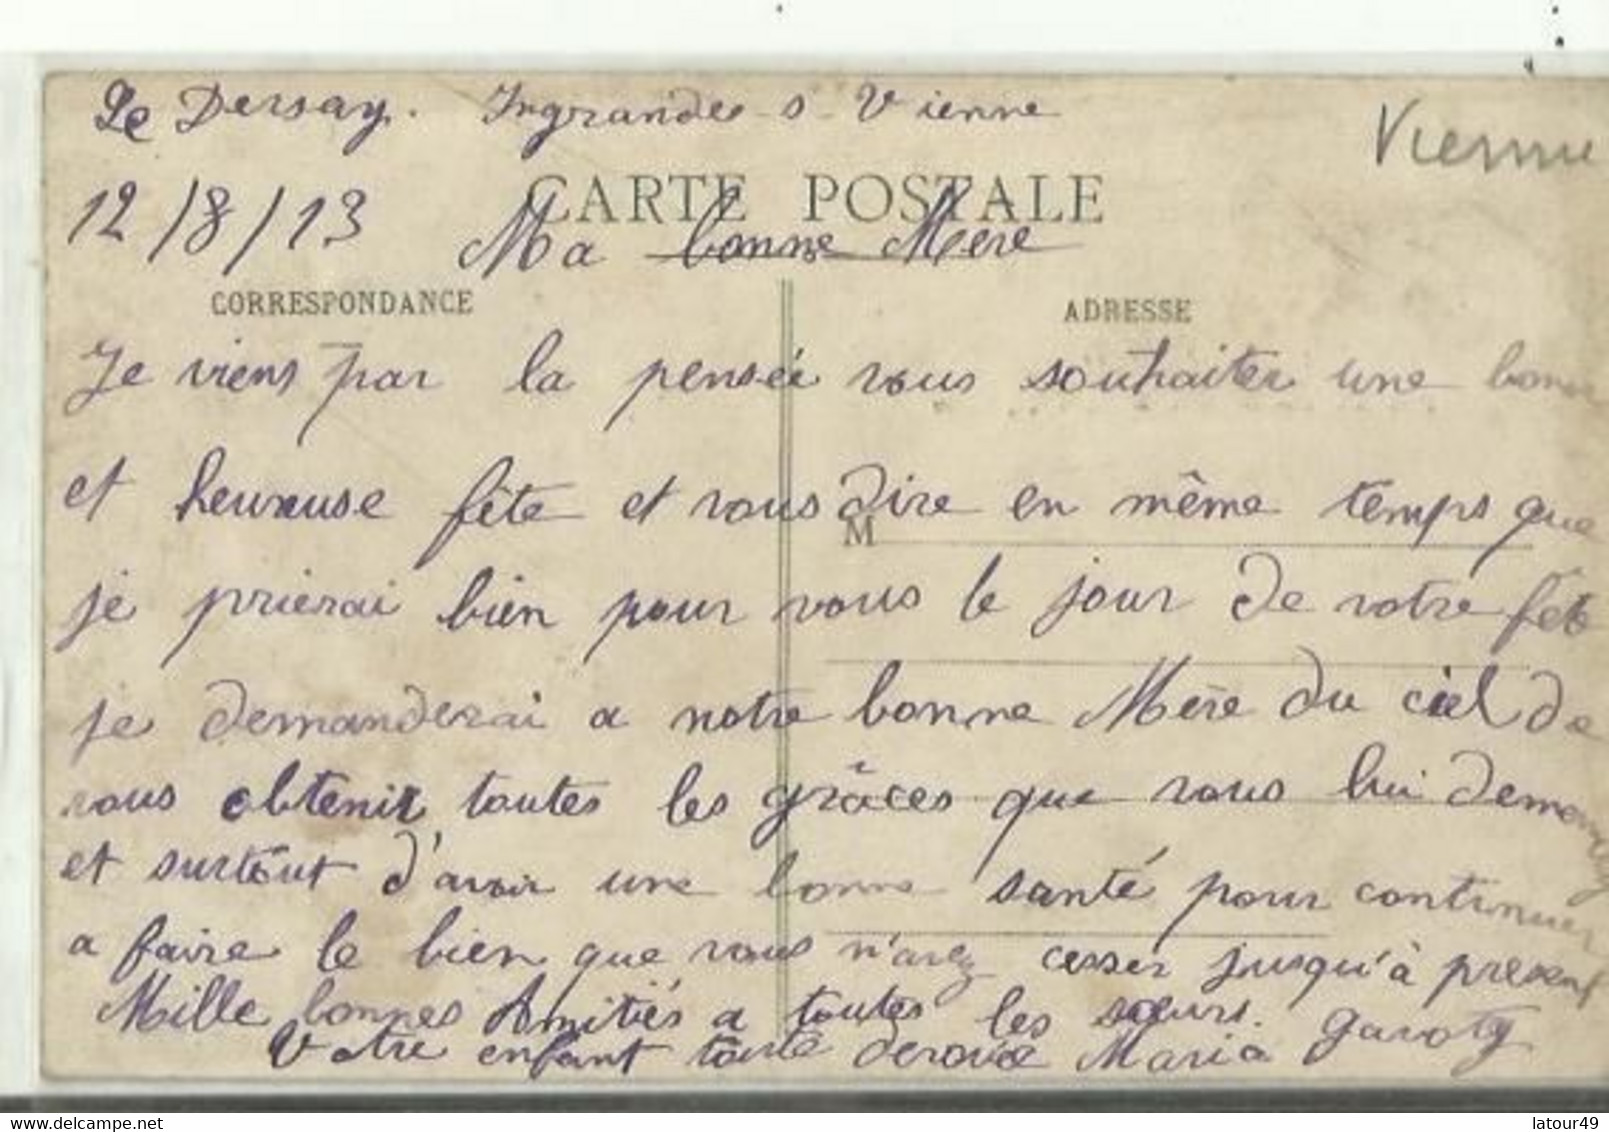 Le Dersay. Ingrandes s Vienne
Vienne
CARTE POSTALE
12/8/13 Ma bonne Mère
CORRESPONDANCE ADRESSE
Je viens par la pensée vous souhaiter une bonne
et heureuse fête et vous dire en même temps que
M
je prierai bien pour vous le jour de votre fête
je demanderai a notre bonne Mère du ciel de
vous obtenir toutes les grâces que vous lui demandez
et surtout d'avoir une bonne santé pour continuer
a faire le bien que vous n'avez cesser jusqu'à présent
Mille bonnes Amitiés a toutes les sœurs.
Votre enfant toute dévouée Maria Gavoty
latour49